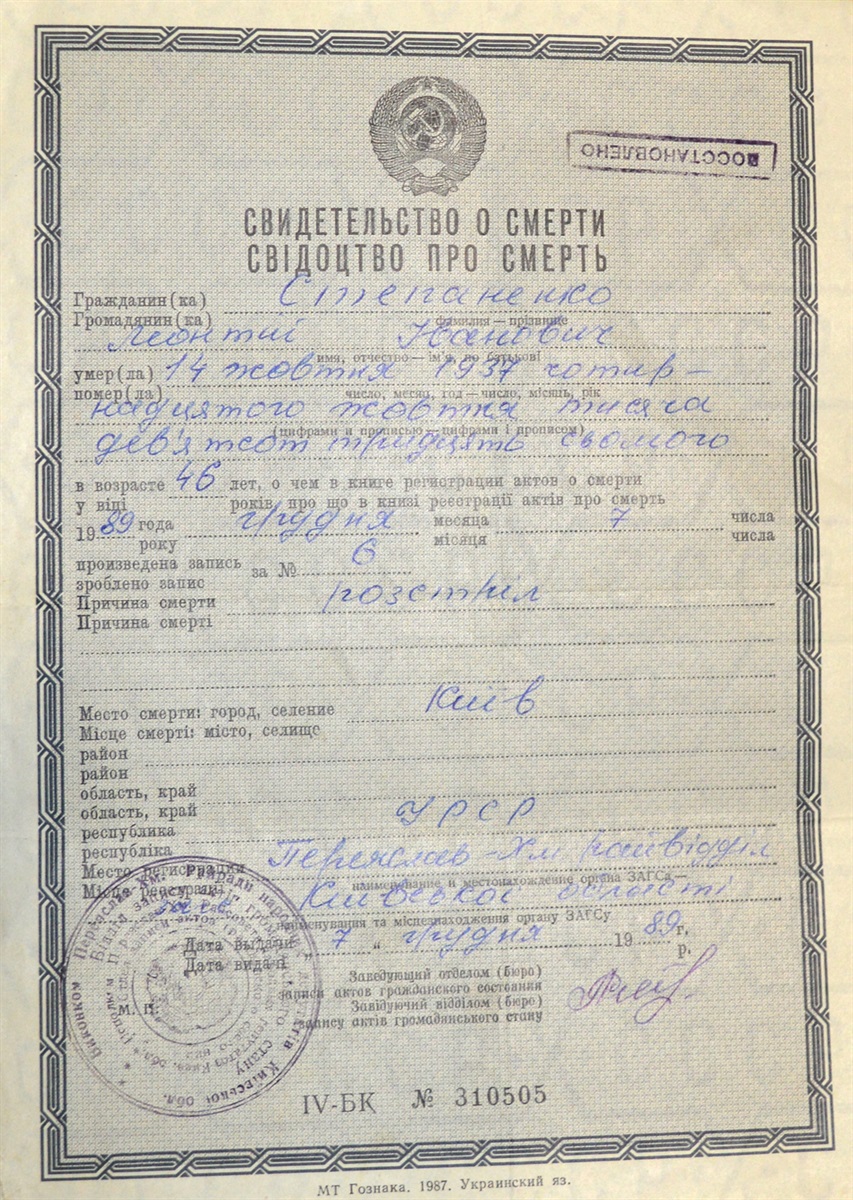 ВОССТАНОВЛЕНО
СВИДЕТЕЛЬСТВО О СМЕРТИ
СВІДОЦТВО ПРО СМЕРТЬ
Гражданин(ка) Степаненко
Громадянин(ка) фамилия — прізвище
Леонтий Іванович
имя, отчество — ім'я, по батькові
умер(ла) 14 жовтня 1937 чотир-
помер(ла) число, месяц, год — число, місяць, рік
надцятого жовтня тисяча
(цифрами и прописью — цифрами і прописом)
дев'ятсот тридцять сьомого
в возрасте 46 лет, о чем в книге регистрации актов о смерти
у віці років, про що в книзі реєстрації актів про смерть
1989 года грудня месяца 7 числа
року місяця числа
произведена запись за № 6
зроблено запис
Причина смерти розстріл
Причина смерті
Место смерти: город, селение Київ
Місце смерті: місто, селище
район
район
область, край
область, край
республика УРСР
республіка
Место регистрации Переяслав-Хм райвідділ
наименование и местонахождение органа ЗАГСа
Місце реєстрації Київської області
загс
найменування та місцезнаходження органу ЗАГСу
Дата выдачи 7 „ грудня 1989 г.
Дата видачі р.
Заведующий отделом (бюро)
записи актов гражданского состояния
М. П. Завідуючий відділом (бюро)
запису актів громадянського стану
IV-БК № 310505
МТ Гознака. 1987. Украинский яз.